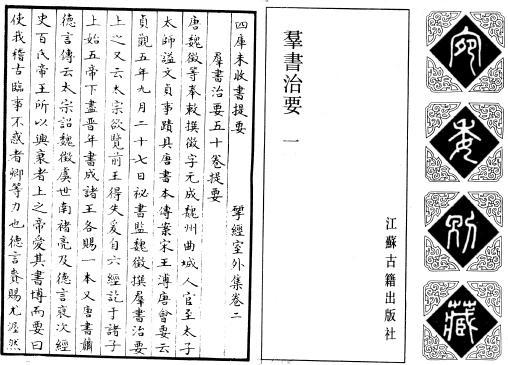 宛
委
別
藏
羣書治要 一
江蘇古籍出版社
四庫未收書提要 揅經室外集卷二
羣書治要五十卷提要
唐魏徵等奉敕撰徵字元成魏州曲城人官至太子
太師謚文貞事蹟具唐書本傳案宋王溥唐會要云
貞觀五年九月二十七日祕書監魏徵撰羣書治要
上之又云太宗欲覽前王得失爰自六經訖于諸子
上始五帝下盡晉年書成諸王各賜一本又唐書蕭
德言傳云太宗詔魏徵虞世南褚亮及德言裒次經
史百氏帝王所以興衰者上之帝愛其書博而要曰
使我稽古臨事不惑者卿等力也德言賚賜尤渥然